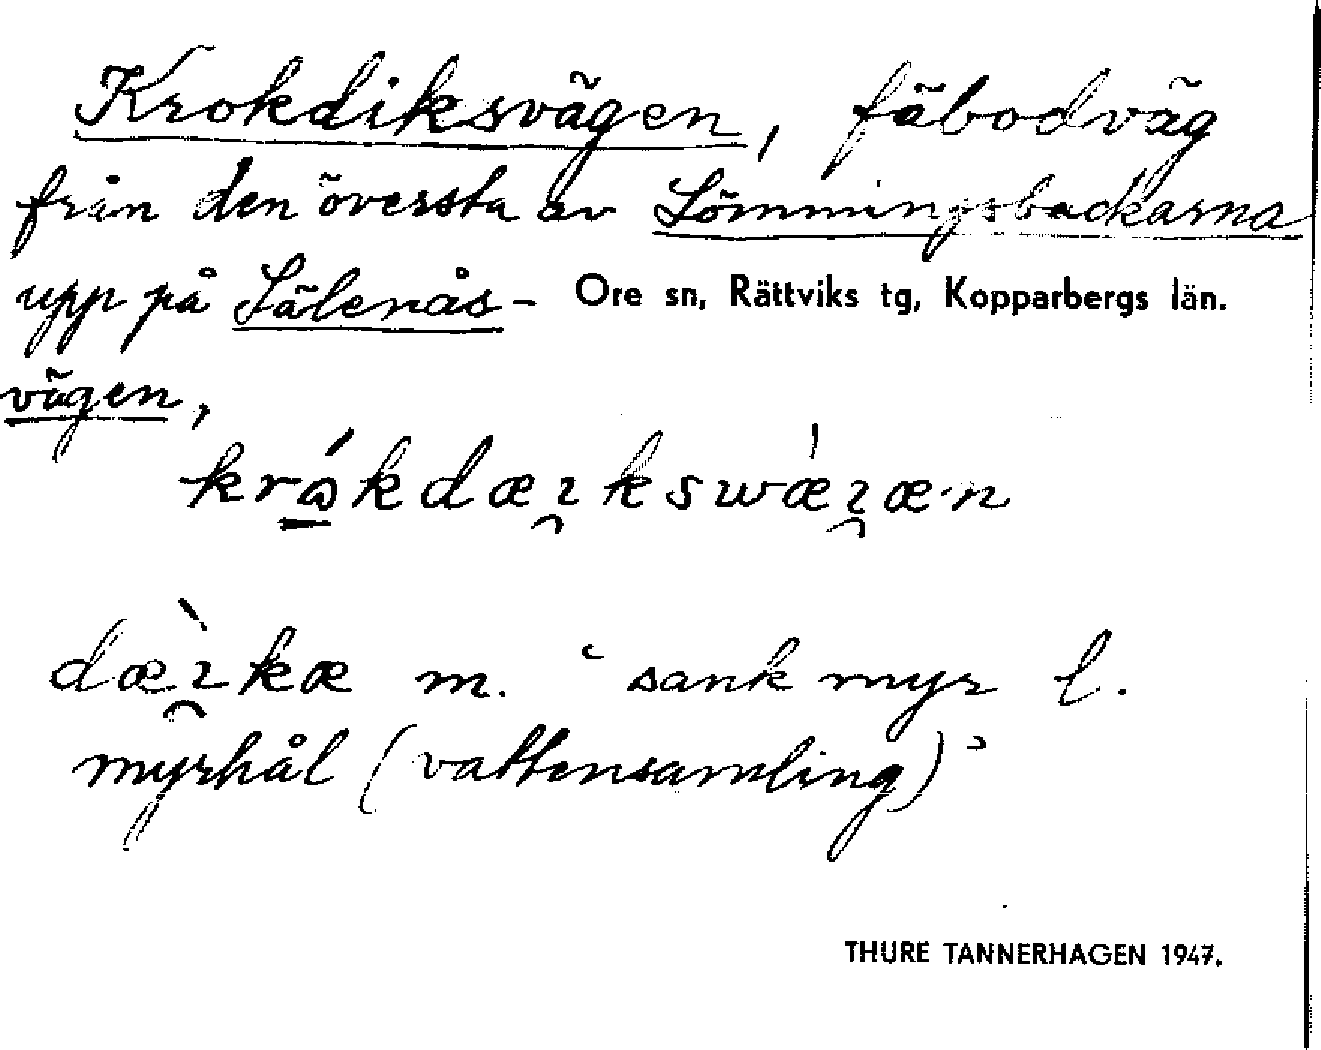 Krokdiksvägen, fäbodväg
från den översta av Lömmingsbackarna
upp på Sälenås- Ore sn, Rättviks tg, Kopparbergs län.
vägen,
dæ̀ıkæ m. ʿsank myr l.
myrhål (vattensamling)ʾ
THURE TANNERHAGEN 1947.